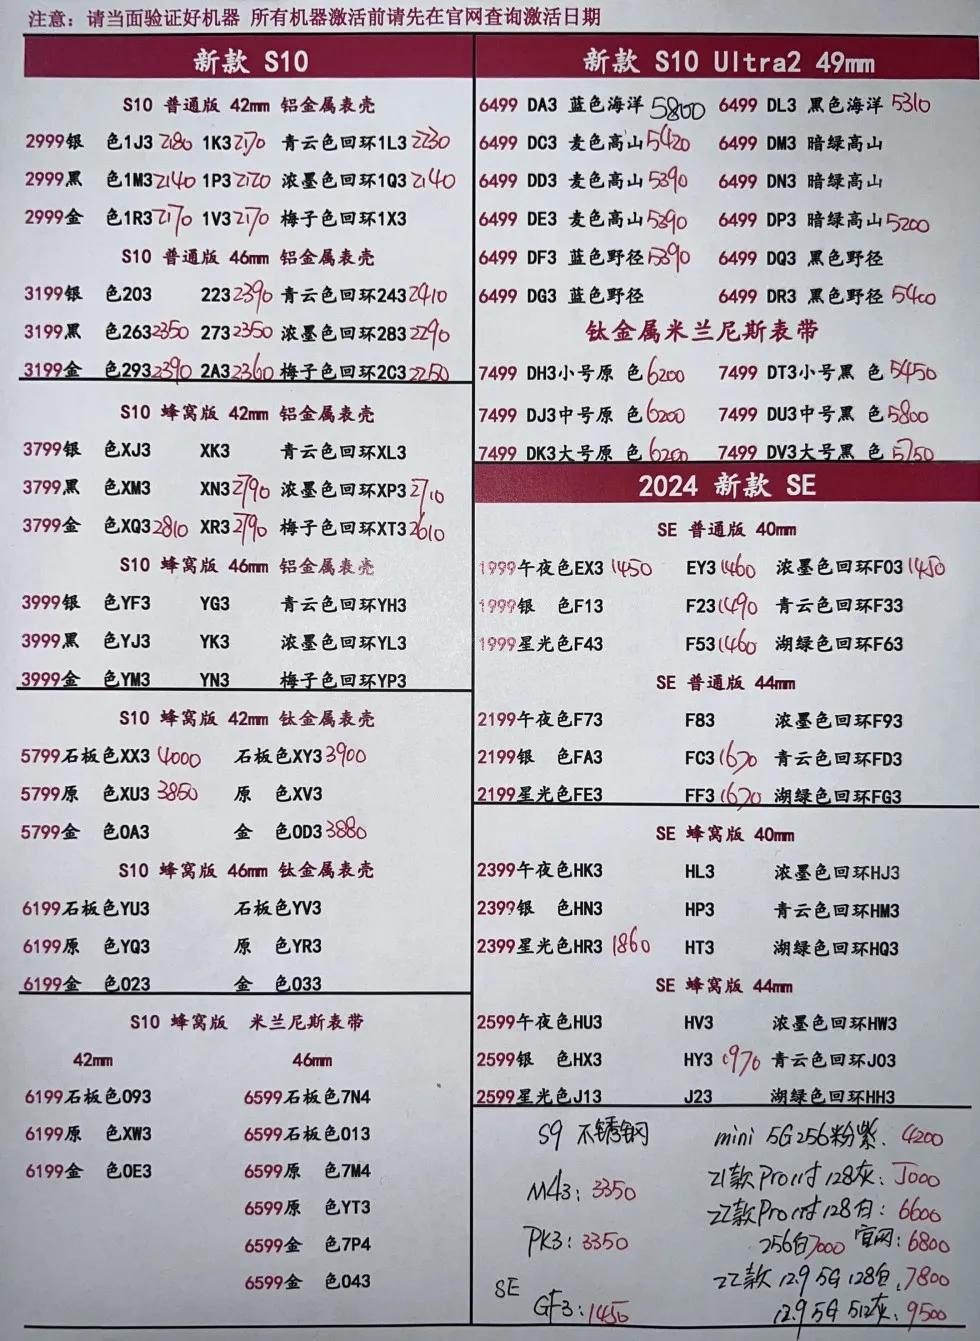 注意：请当面验证好机器 所有机器激活前请先在官网查询激活日期
新款 S10
S10 普通版 42mm 铝合金表壳
2999银 色1J3 2180 1K3 2170 青云色回环1L3 2230
2999黑 色1M3 2140 1P3 2120 浓墨色回环1Q3 2140
2999金 色1R3 2170 1V3 2170 梅子色回环1X3
S10 普通版 46mm 铝金属表壳
3199银 色203 223 2390 青云色回环243 2410
3199黑 色263 2350 273 2350 浓墨色回环283 2290
3199金 色293 2390 2A3 2360 梅子色回环2C3 2250
S10 蜂窝版 42mm 铝金属表壳
3799银 色XJ3 XK3 青云色回环XL3
3799黑 色XM3 XN3 2790 浓墨色回环XP3 2710
3799金 色XQ3 2810 XR3 2790 梅子色回环XT3 2610
S10 蜂窝版 46mm 铝金属表壳
3999银 色YF3 YG3 青云色回环YH3
3999黑 色YJ3 YK3 浓墨色回环YL3
3999金 色YM3 YN3 梅子色回环YP3
S10 蜂窝版 42mm 钛金属表壳
5799石板色XX3 4000 石板色XY3 3900
5799原 色XU3 3850 原 色XV3
5799金 色0A3 金 色0D3 3880
S10 蜂窝版 46mm 钛金属表壳
6199石板色YU3 石板色YV3
6199原 色YQ3 原 色YR3
6199金 色023 金 色033
S10 蜂窝版 米兰尼斯表带
42mm 46mm
6199石板色093 6599石板色7N4
6199原 色XW3 6599石板色013
6199金 色0E3 6599原 色7M4
6599原 色YT3
6599金 色7P4
6599金 色043
新款 S10 Ultra2 49mm
6499 DA3 蓝色海洋 5800 6499 DL3 黑色海洋 5310
6499 DC3 麦色高山 5420 6499 DM3 暗绿高山
6499 DD3 麦色高山 5390 6499 DN3 暗绿高山
6499 DE3 麦色高山 5390 6499 DP3 暗绿高山 5200
6499 DF3 蓝色野径 5390 6499 DQ3 黑色野径
6499 DG3 蓝色野径 6499 DR3 黑色野径 5400
钛金属米兰尼斯表带
7499 DH3小号原 色 6200 7499 DT3小号黑 色 5450
7499 DJ3中号原 色 6200 7499 DU3中号黑 色 5800
7499 DK3大号原 色 6200 7499 DV3大号黑 色 5750
2024 新款 SE
SE 普通版 40mm
1999午夜色EX3 1450 EY3 1460 浓墨色回环F03 1450
1999银 色F13 F23 1490 青云色回环F33
1999星光色F43 F53 1460 湖绿色回环F63
SE 普通版 44mm
2199午夜色F73 F83 浓墨色回环F93
2199银 色FA3 FC3 1670 青云色回环FD3
2199星光色FE3 FF3 1670 湖绿色回环FG3
SE 蜂窝版 40mm
2399午夜色HK3 HL3 浓墨色回环HJ3
2399银 色HN3 HP3 青云色回环HM3
2399星光色HR3 1860 HT3 湖绿色回环HQ3
SE 蜂窝版 44mm
2599午夜色HU3 HV3 浓墨色回环HW3
2599银 色HX3 HY3 1970 青云色回环J03
2599星光色J13 J23 湖绿色回环HH3
S9 不锈钢
M43: 3350
PK3: 3350
SE
GF3: 1450
mini 5G 256粉紫. 4200
21款Pro11寸128灰: 5000
22款Pro11寸128白: 6600
256白7000 官网: 6800
22款 12.9 5G 128白. 7800
12.9 5G 512灰: 9500